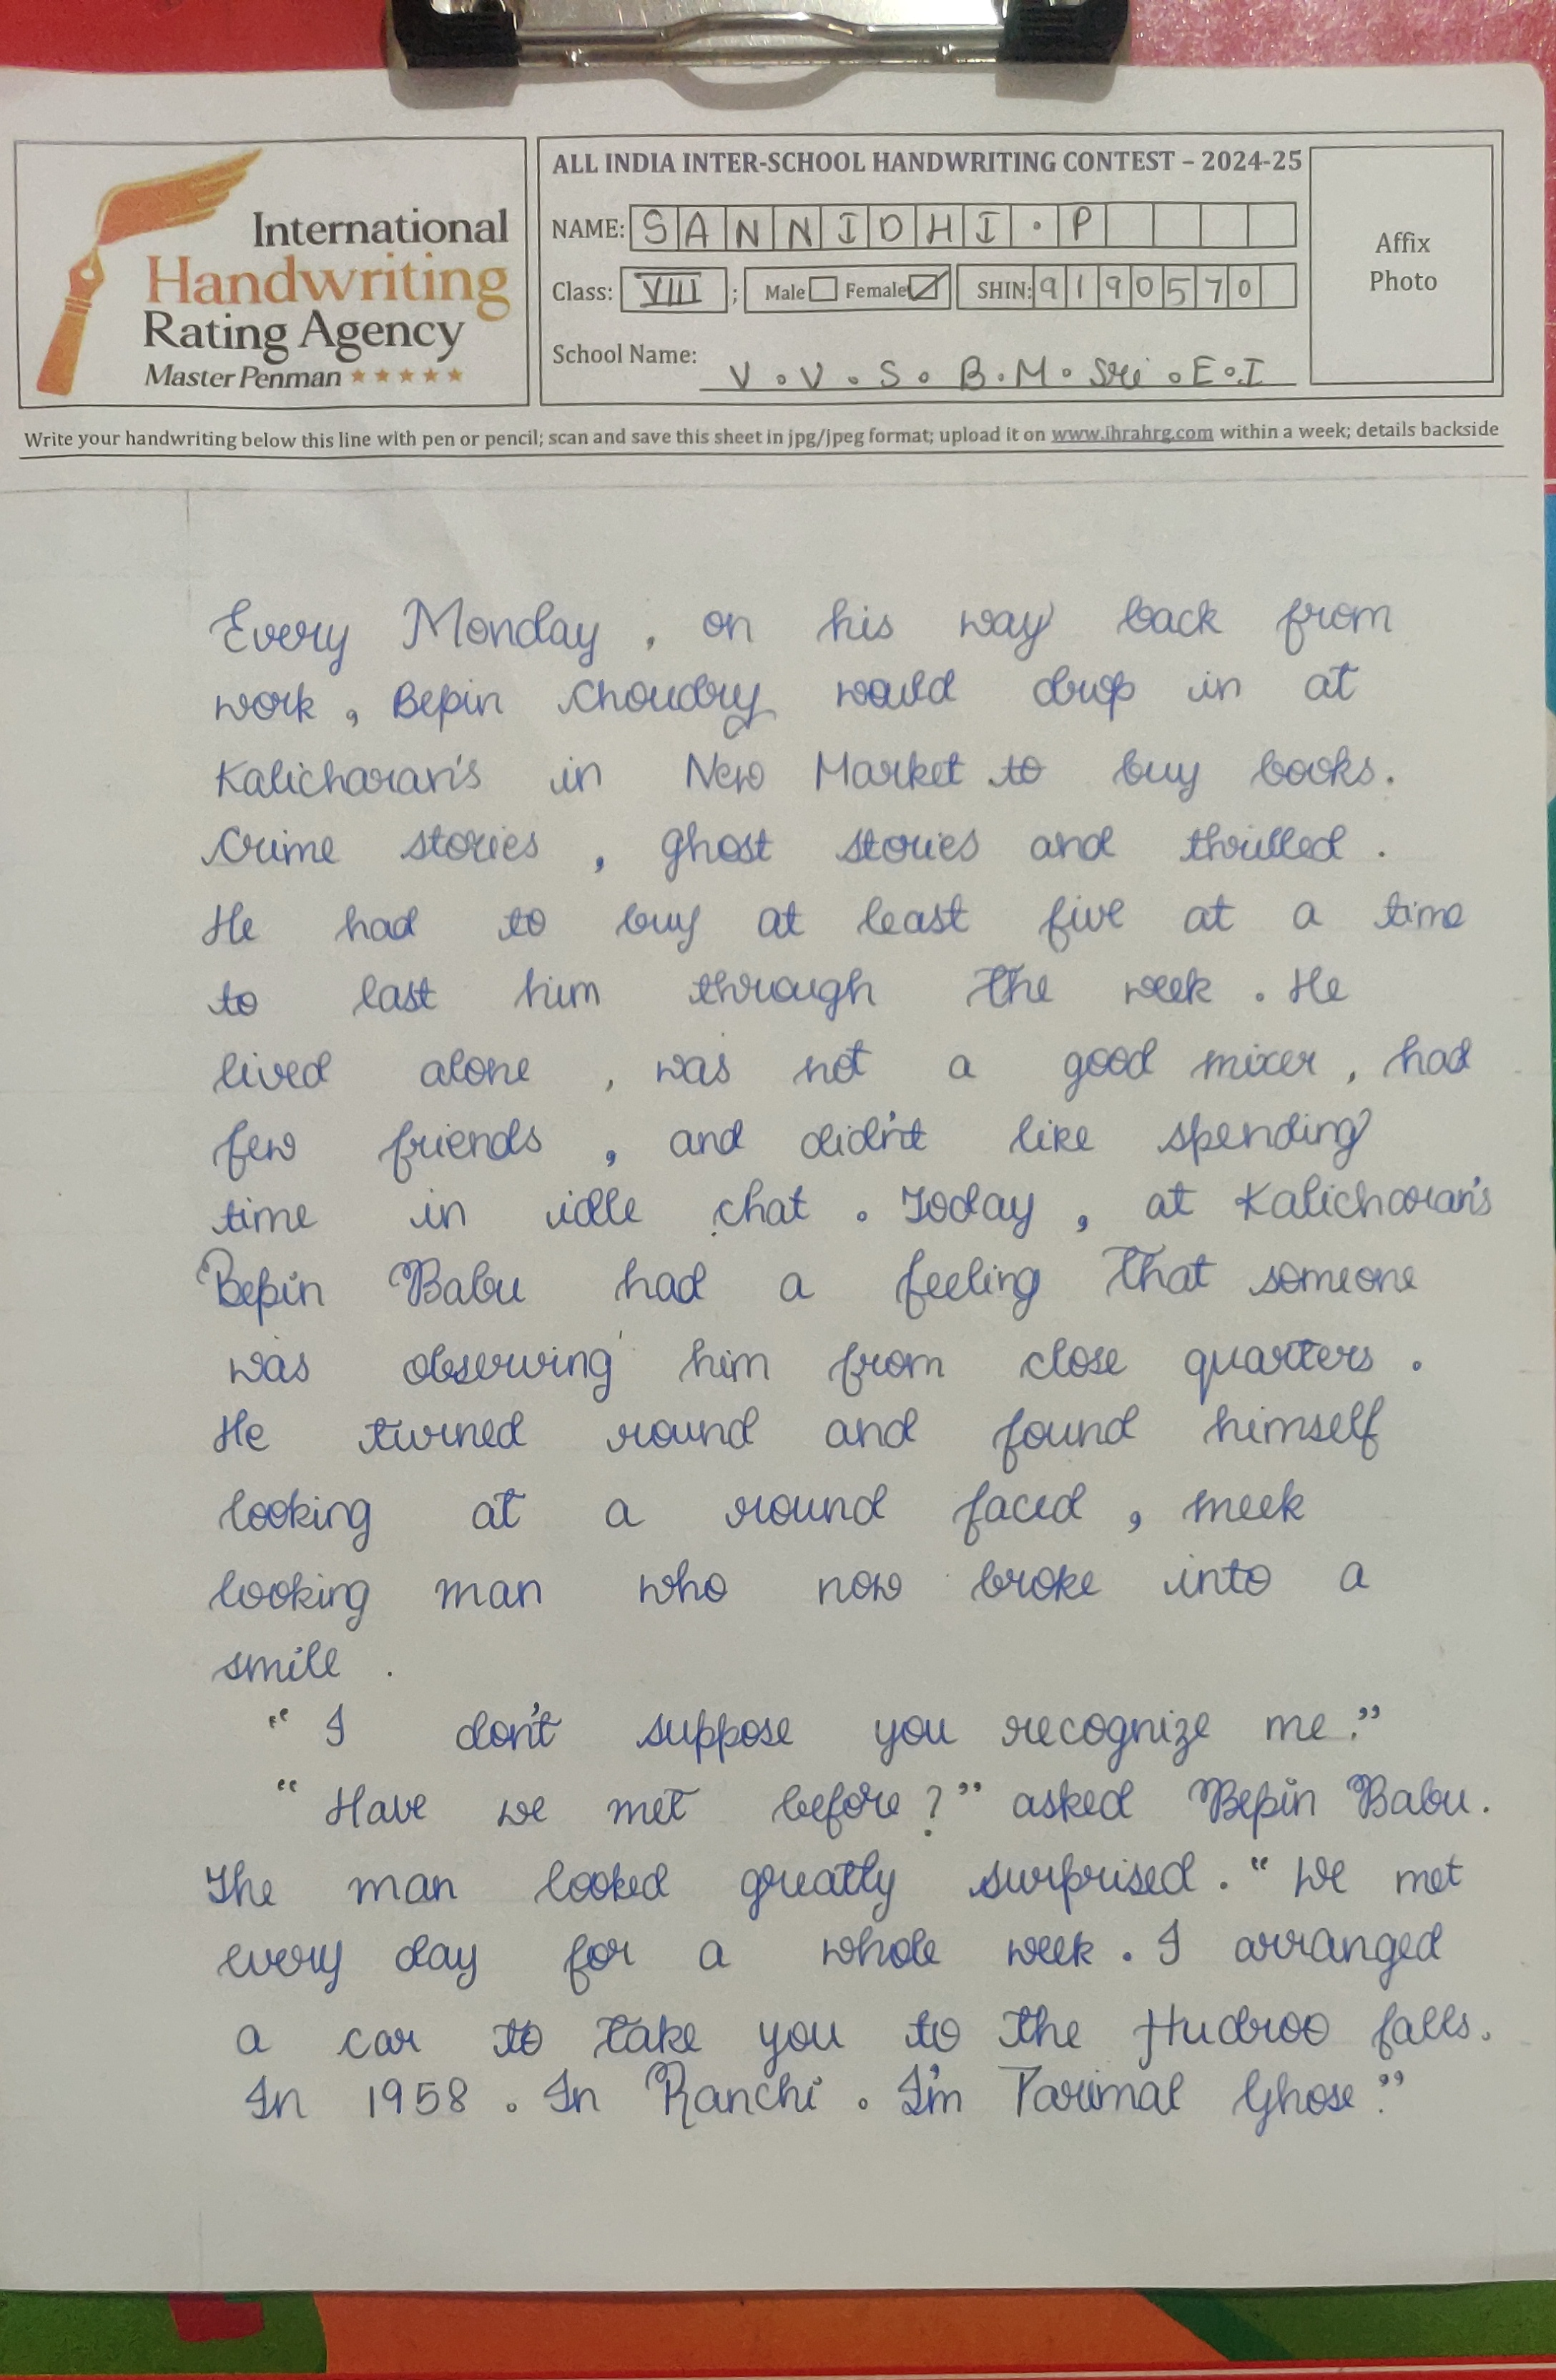 International
Handwriting
Rating Agency
Master Penman ★★★★★
ALL INDIA INTER-SCHOOL HANDWRITING CONTEST – 2024-25
NAME: SANNIDHI.P
Class: VIII ; Male Female SHIN: 9190570
School Name: V.V.S.B.M.Sri.E.I
Affix
Photo
Write your handwriting below this line with pen or pencil; scan and save this sheet in jpg/jpeg format; upload it on www.ihrahrg.com within a week; details backside
Every Monday, on his way back from
work, Bepin Choudry would drop in at
Kalicharan's in New Market to buy books.
Crime stories, ghost stories and thrilled.
He had to buy at least five at a time
to last him through the week. He
lived alone, was not a good mixer, had
few friends, and didn't like spending
time in idle chat. Today, at Kalicharan's
Bepin Babu had a feeling that someone
was observing him from close quarters.
He turned round and found himself
looking at a round faced, meek
looking man who now broke into a
smile.
"I don't suppose you recognize me."
"Have we met before?" asked Bepin Babu.
The man looked greatly surprised. "We met
every day for a whole week. I arranged
a car to take you to the Hudroo falls.
In 1958. In Ranchi. I'm Parimal Ghose."